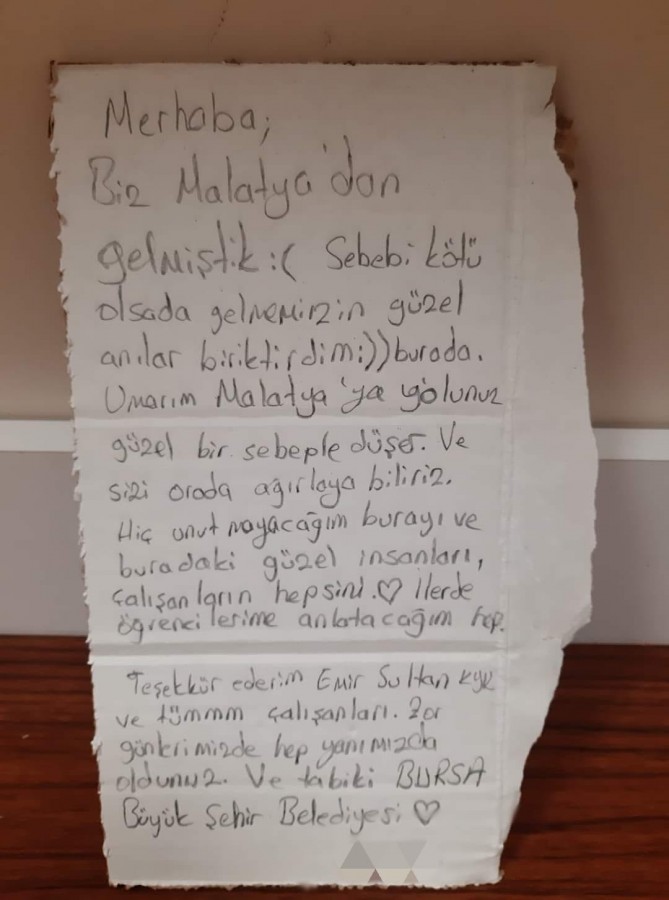 Merhaba;
Biz Malatya'dan
gelmiştik :( Sebebi kötü
olsada gelmemizin güzel
anılar biriktirdim:)) burada.
Umarım Malatya'ya yolunuz
güzel bir sebeple düşer. Ve
sizi orada ağırlaya biliriz.
Hiç unut mayacağım burayı ve
buradaki güzel insanları,
çalışanların hepsini. ♡ ilerde
öğrenci lerime anlatacağım hep.
Teşekkür ederim Emir Sultan KYK
ve tümmm çalışanları. Zor
günlerimizde hep yanımızda
oldunuz. Ve tabiki BURSA
Büyük Şehir Belediyesi ♡